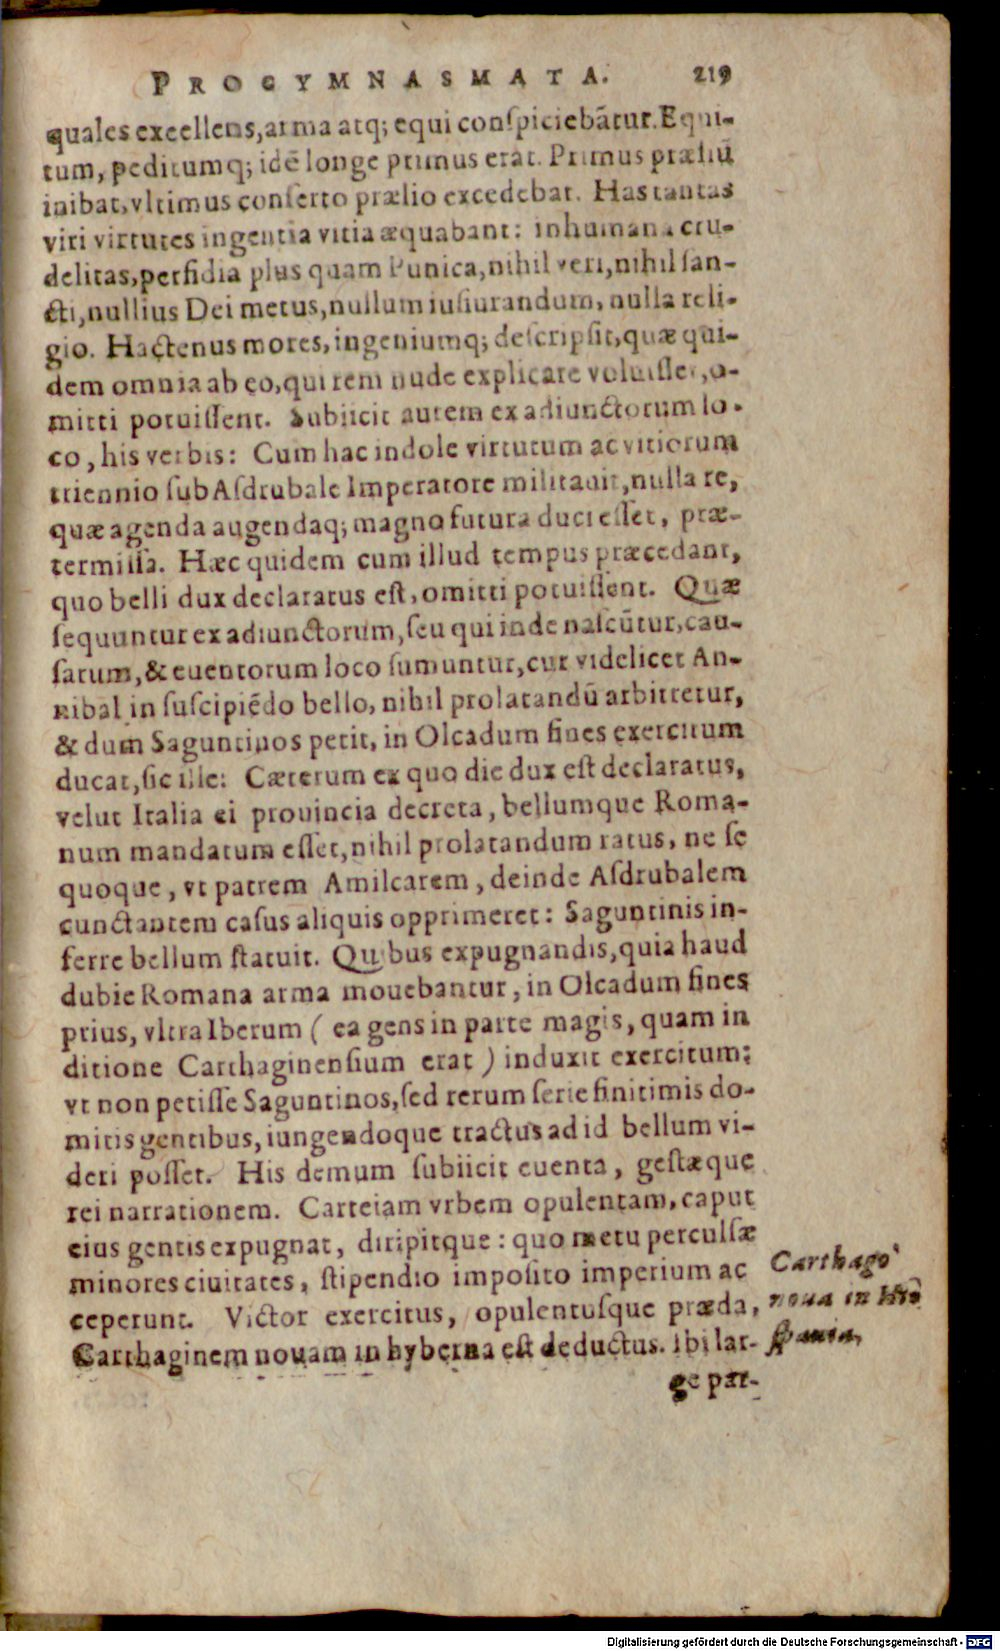 PROGYMNASMATA. 219
quales excellens, arma atq; equi conſpiciebãtur. Equi-
tum, peditumq; idẽ longe primus erat. Primus præliũ
inibat, vltimus conſerto prælio excedebat. Has tantas
viri virtutes ingentia vitia æquabant: inhumana cru-
delitas, perfidia plus quam Punica, nihil veri, nihil ſan-
cti, nullius Dei metus, nullum iuſiurandum, nulla reli-
gio. Hactenus mores, ingeniumq; deſcripſit, quæ qui-
dem omnia ab eo, qui rem nude explicare voluiſſet, o-
mitti potuiſſent. Subiicit autem ex adiunctorum lo-
co, his verbis: Cum hac indole virtutum ac vitiorum
triennio ſub Aſdrubale Imperatore militauit, nulla re,
quæ agenda augendaq; magno futura duci eſſet, præ-
termiſſa. Hæc quidem cum illud tempus præcedant,
quo belli dux declaratus eſt, omitti potuiſſent. Quæ
ſequuntur ex adiunctorum, ſeu qui inde naſcũtur, cau-
ſarum, & euentorum loco ſumuntur, cur videlicet An-
nibal in ſuſcipiẽdo bello, nihil prolatandũ arbitretur,
& dum Saguntinos petit, in Olcadum fines exercitum
ducat, ſic ille: Cæterum ex quo die dux eſt declaratus,
velut Italia ei prouincia decreta, bellumque Roma-
num mandatum eſſet, nihil prolatandum ratus, ne ſe
quoque, vt patrem Amilcarem, deinde Aſdrubalem
cunctantem caſus aliquis opprimeret: Saguntinis in-
ferre bellum ſtatuit. Quibus expugnandis, quia haud
dubie Romana arma mouebantur, in Olcadum fines
prius, vltra Iberum ( ea gens in parte magis, quam in
ditione Carthaginenſium erat ) induxit exercitum:
vt non petiſſe Saguntinos, ſed rerum ſerie finitimis do-
mitis gentibus, iungendoque tractus ad id bellum vi-
deri poſſet. His demum ſubiicit euenta, geſtæque
rei narrationem. Carteiam vrbem opulentam, caput
eius gentis expugnat, diripitque: quo metu perculſæ
minores ciuitates, ſtipendio impoſito imperium ac
ceperunt. Victor exercitus, opulentuſque præda,
Carthaginem nouam in hyberna eſt deductus. Ibi lar-
ge par-
Carthago
noua in Hiſ-
pania,
Digitalisierung gefördert durch die Deutsche Forschungsgemeinschaft - DFG